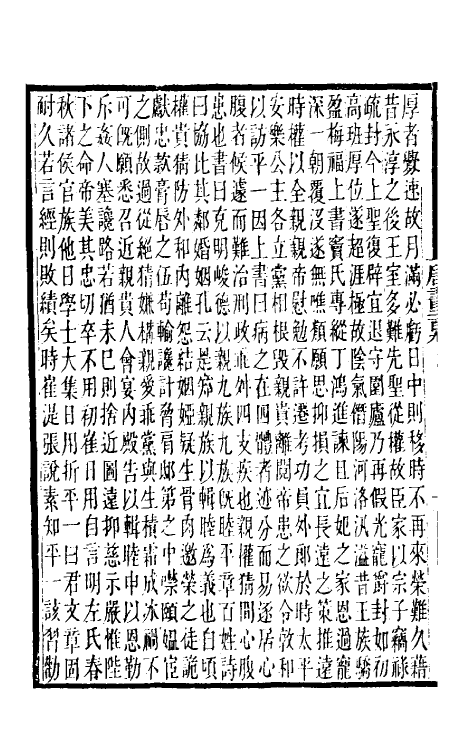 厚者釁速故月滿必虧日中則移時不再來榮難久藉
昔永淳之後王室多難先聖從權故臣家以宗子竊祿
疏封今上聖復辟宜退守園廬乃再假光寵爵封如初
高班厚位遂超涯極故陰氣僭陽河洛汎溢昔王族驕
盈梅福上書竇氏專縱丁鴻進諫且后妃之家恩過寵
深一朝覆沒遂無噍類願思抑損之宜長遠之策推遠
時權以全親親帝慰勉不許遷考功員外郎於時太平
安樂公主各立黨相根毀親貴離鬩帝患之欲令敦和
以訪平一因上書曰病之在四體者迹分而易逐居心
腹者候遽而難治刑政乖舛四支疾也親權猜間心腹
患也書曰克明峻德以親九族九族旣睦平章百姓詩
曰協比其鄰婚姻孔云是知親族以輯睦爲義也自頃
權貴猜防外和內離怨結姻婭疑生骨肉邀榮之徒詭
獻忠款膏脣之伍苟輸讒計脅肩邸第之中噤頤媼宦
之側故過從絕猜嫌構親愛乖黨與生積霜成冰禍不
可旣願悉召近親貴人會宴內殿告以輯睦申以恩勤
斥姦人塞讒路若猶未已則捨近圖遠抑慈示嚴惟陛
下之命帝美其忠切卒不用初崔日用自言明左氏春
秋諸侯官族他日學士大集日用折平一曰君文章固
耐久若言經則敗績矣時崔湜張說素知平一該習勸